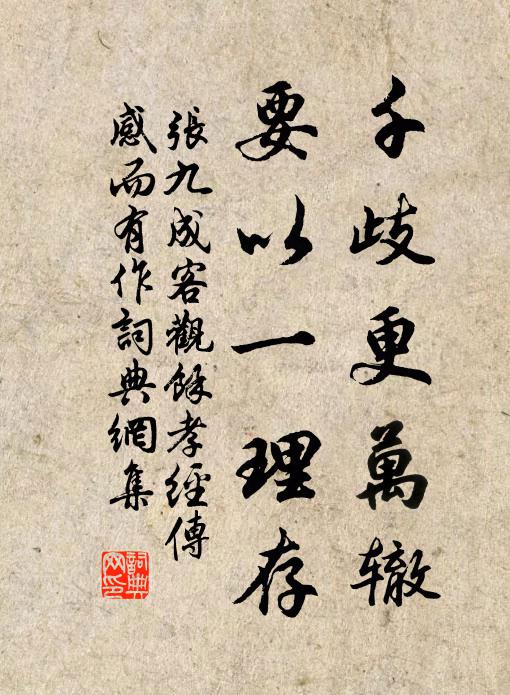 千歧更萬辙
要以一理存
張九成客觀餘孝經傳
感而有作詞典網集
詞典网印